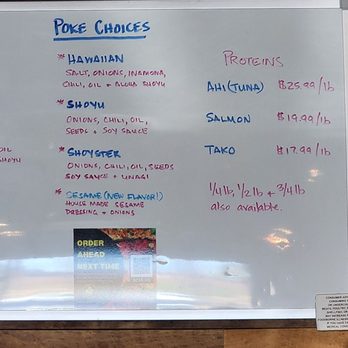 POKE CHOICES
* HAWAIIAN
SALT, ONIONS, INAMONA,
CHILI, OIL + ALOHA SHOYU
* SHOYU
ONIONS, CHILI, OIL,
SEEDS + SOY SAUCE
* SHOYSTER
ONIONS, CHILI, OIL, SEEDS
SOY SAUCE + UNAGI
* SESAME (NEW FLAVOR!)
HOUSE MADE SESAME
DRESSING + ONIONS
PROTEINS
AHI (TUNA) $25.99/lb
SALMON $19.99/lb
TAKO $17.99/lb
1/4 lb, 1/2 lb + 3/4 lb
also available.
OIL
SHOYU
ORDER
AHEAD
NEXT TIME